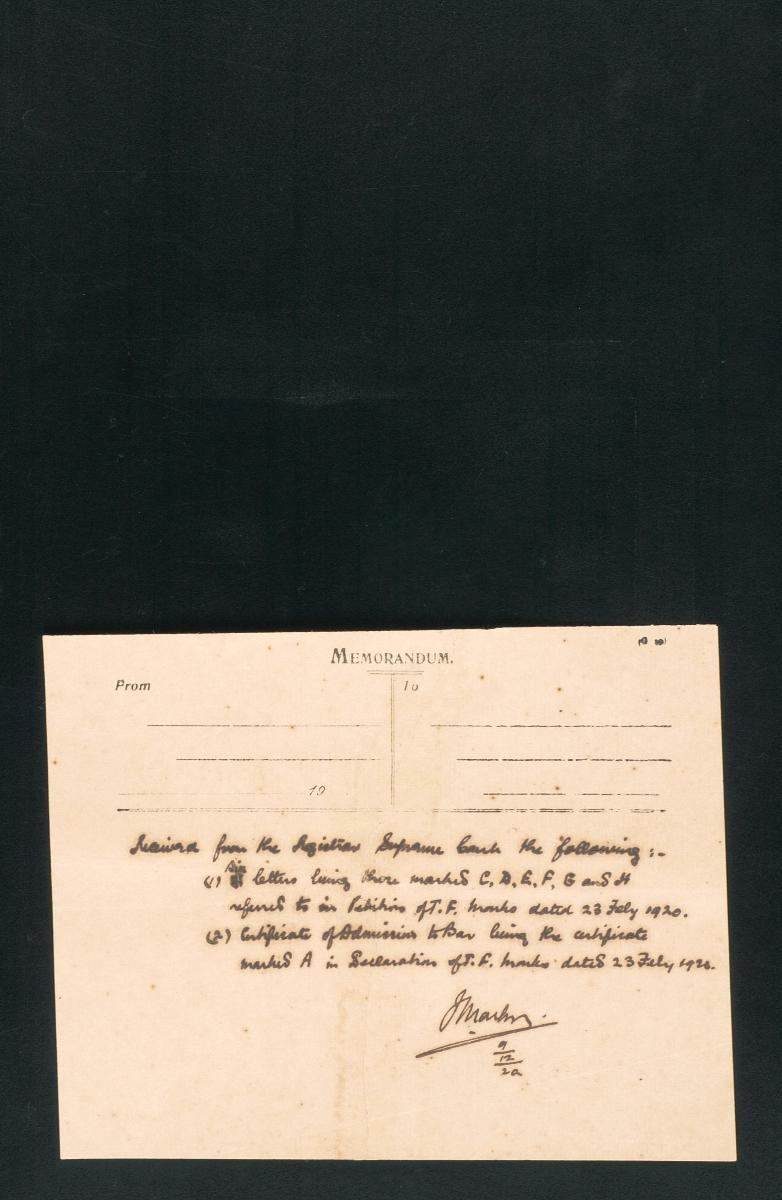 MEMORANDUM.
From To
19
Received from the Registrar Supreme Court the following :-
(1) Six letters being those marked C, D, E, F, G and H
referred to in Petition of T. F. Monks dated 23 Feby 1920.
(2) Certificate of Admission to Bar being the certificate
marked A in Declaration of T. F. Monks dated 23 Feby 1920.
9
12
20